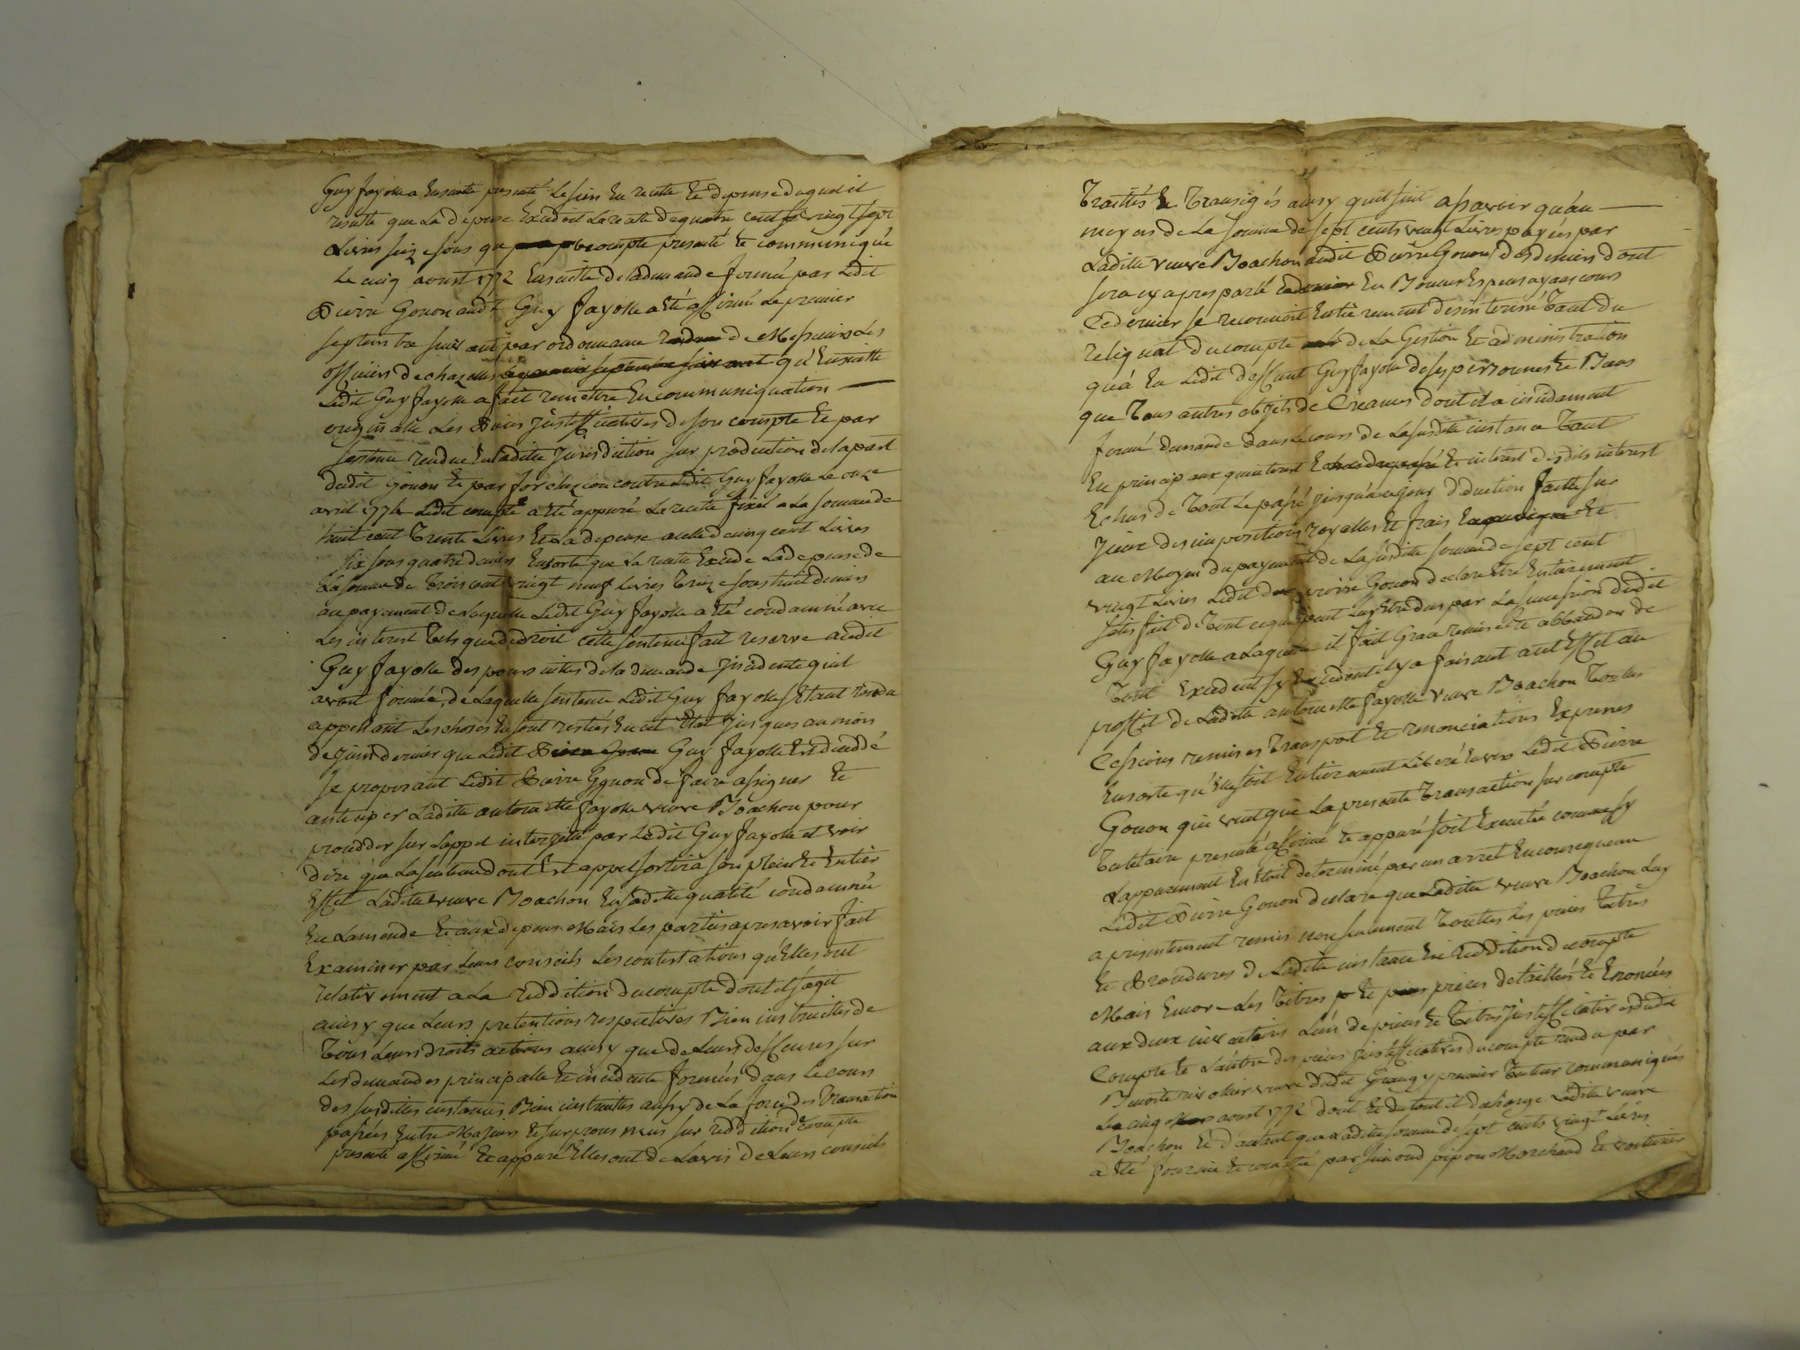 Guy fayolle a Ensuitte presenté Le sien En recette Et depense duquel il
resulte que La depense Excedoit La recette de quatre cent vingt sept
Livres seize sous compte presenté Et communiqué
Le cinq aoust 1772 Ensuitte de la demande formée par Ledit
Pierre Gonon audt Guy fayolle a Eté affirmé Le premier
septembre suivant par ordonnance de Messieurs Les
officiers de qu'Ensuitte
Ledit Guy fayolle a fait remettre En communiquation
originalle Les Pieces justifficatives de son compte Et par
sentence rendue En Laditte jurisdiction sur production de la part
dudit Gonon Et par contre Ledit Guy fayolle Le onze
avril 1774 Ledit compte a Eté appuré La recette fixée a La somme de
huit cent Trente Livres Et La depense a celle de cinq cent Livres
six sous quatre deniers Ensorte que La recette Excede La depense de
La somme de Trois cent vingt neuf Livres Treize sous huit deniers
au payement de Laquelle Ledit Guy fayolle a Eté condamné avec
Les interest Tels que de droit cette sentence fait reserve audit
Guy fayolle des poursuittes de la demande jncidente qu'il
avoit formée, de Laquelle sentence Ledit Guy fayolle s'Etant rendu
appellant Les choses En sont restées En cet Etat jusques au mois
de juin dernier que Ledit Guy fayolle Est decedé
se proposant Ledit Pierre Gonon de faire assigner Et
anticiper Laditte antoinette fayolle veuve Boachon pour
proceder sur L'appel interjetté par Ledit Guy fayolle et voir
dire que La sentence dont Est appel sortira son plein Et Entier
Effet Laditte veuve Boachon En sa ditte qualité condamnée
En L'amende Et aux depens Mais Les parties apres avoir fait
Examiner par Leurs conseils Les contestations qu'Elles ont
relativement a La reddition du compte dont il s'agit
ainsy que Leurs pretentions respectives Bien instruittes de
Tous Leurs droits actions ainsy que de Leurs deffenses sur
Les demandes principalle Et incidente formées dans Le cours
des susdittes instances Bien instruittes aussy de La force des Transaction
passées Entre Majeurs Et sur proces mus sur reddition de compte
presenté affirmé Et appuré Elles ont de L'avis de Leurs conseils
Traittés Et Transigés ainsy qu'il suit assavoir qu'au
moyen de La somme de sept cents vingt Livres payées par
Laditte veuve Boachon audit Pierre Gonon des deniers dont
sera cy apres parlé En Bonnes Especes ayans cours
Ce dernier se reconnoit Entierement desinteressé Tant du
reliquat du compte de La Gestion Et administration
qu'a Eu Ledit deffunt Guy fayolle de ses personnes Et Biens
que Tous autres objets de Créances dont il a incidament
formé demande dans Le cours de La susditte instance Tant
En principaux qu'interest Et interest desdits interest
Echus de Tout Le passé jusqu'a ce jour deduction faitte sur
jceux des impositions royalles Et frais Et
au Moyen du payement de La susditte somme de sept cent
vingt Livres Ledit Pierre Gonon declare Etre Entierement
satisfait de Tout ce qui peut Luy Etre du par La succession dudit
Guy fayolle a Laquelle il fait Grace remise Et abbandon de
Tout Excedent sy Excedent il y a faisant a cet Effet au
proffit de Laditte antoinette fayolle veuve Boachon Touttes
Cessions remises Transport Et renonciations Expresses
Ensorte qu'Elle soit Entierement Libérée Envers Ledit Pierre
Gonon qui veut que La presente Transaction sur compte
Tutelaire presenté affirmé Et appuré soit Executée comme sy
L'appurement En Etoit determiné par un arret En consequence
Ledit Pierre Gonon declare que Laditte veuve Boachon Luy
a presentement remis non seulement Touttes Les pieces Titres
Et Procedures de Laditte instance En reddition de compte
Mais Encore Les Titres Et pieces detaillés Et Enoncées
aux deux inventaires L'un de pieces Et Titres justifficatives dudit
Compte Et L'autre des pieces justifficatives du compte rendu par
Benoite veuve dudit premier Tuteur communiqués
Le cinq aoust 1772 dont Et du tout il decharge Laditte veuve
Boachon Et d'autant que Laditte somme de sept cents vingt Livres
a Eté fournie Et comptée par simond pipon Marchand Et voiturier